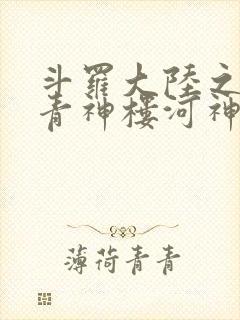 斗羅大陸之
青神樓河神
薄荷青青